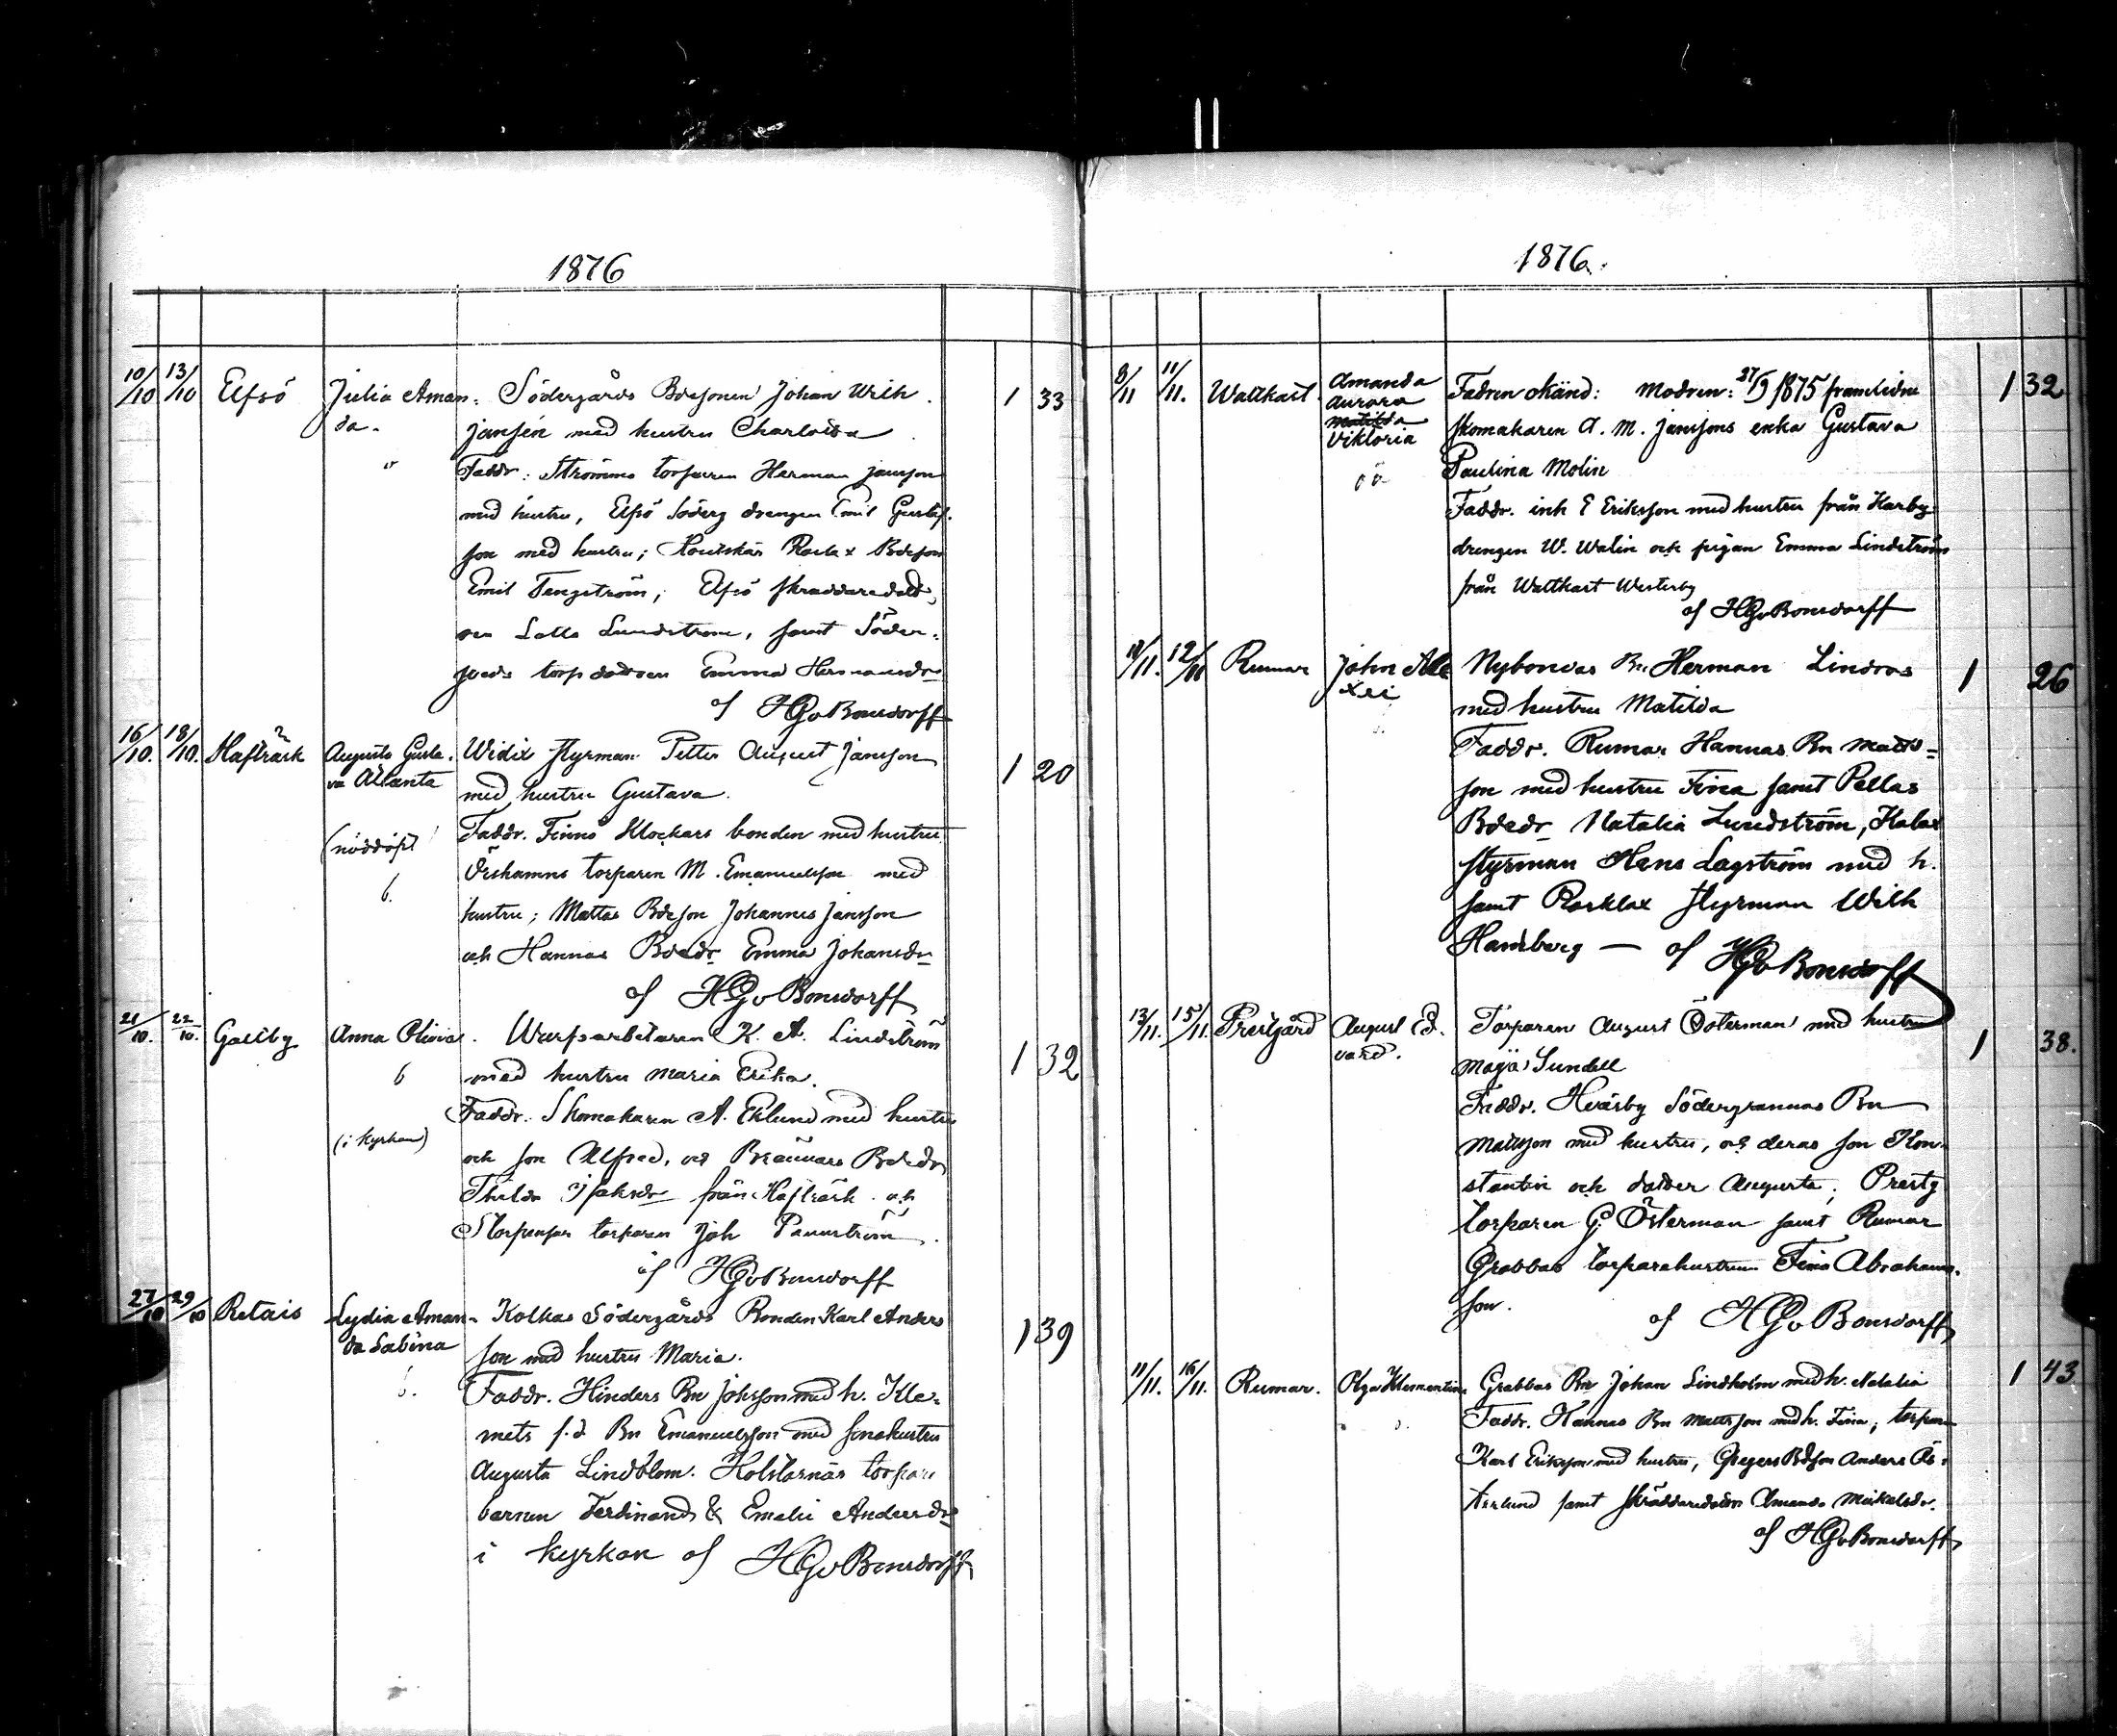 1876
10/10 13/10 Elfsö Julia Aman- Södergårds Bdesonen Johan Wilh. 1 33
da. Jansén med hustru Charlotta
Faddr: Strömma torparen Herman Jansson
med hustru, Elfsö Söderg drengen Emil Gustaf-
son med hustru; Houtskär Bdeson
Emil Tengström; Elfsö skraddaredott
Lotta Lundström, samt Söder-
torp dottren Emma Hermansdr
af HGvBonsdorff
16/10. 18/10. Hafträsk Augusta Gusta- Widix styrman Petter August Jansson 1 20
va Atlanta med hustru Gustava.
(nöddöpt) Faddr. Finnö Klockars bonden med hustru
Örshamns torparen M. Emanuelsson med
6. hustru; Mattas Bdeson Johannes Jansson
och Hannas Bdedr Emma Johansdr
af HGvBonsdorff
21/10. 22/10. Galtby Anna Olivia. Warfsarbetaren K. A. Lindström 1 32
6 med hustru Maria Erika.
Faddr. Skomakaren A. Eklund med hustru
(i kyrkan) och son Alfred, och Brännars Bdedr
Thilda Isaksdr från Hafträsk och
torparen Joh
af HGvBonsdorff
27/10 29/10 Retais Lydia Aman- Kolkas Södergårds Bonden Karl Anders 1 39
da Sabina son med hustru Maria.
6. Faddr. Hinders Bn Johsson med h. Kle-
mets f.d. Bn Emanuelsson med sonahustru
Augusta Lindblom. Holstarnäs torpare
barnen Ferdinand & Emelie Andersdr
i kyrkan af HGvBonsdorff
1876.
8/11 11/11. Wattkast Amanda Fadren okänd: Modren: 27/9 1875 framlidne 1 32
Aurora
Matilda skomakaren A. M. Janssons enka Gustava
Viktoria
Paulina Molin
Faddr. inh E Eriksson med hustru från Harby
drengen W. Walin och pigan Emma Lindström
från Wattkast Westerby
af HGvBonsdorff
11/11. 12/11 Rumar John Ale Nybondas Bn Herman Lindros 1 26
xei med hustru Matilda
Faddr. Rumar Hannas Bn Matts-
son med hustru Fina samt Pellas
Bdedr Natalia Lundström, Kalax
styrman Hans Lagström med h.
samt Rosklax styrman Wilh
Hamberg — af HGvBonsdorff
13/11. 15/11. Prestgård August Ed- Torparen August Österman med hustru 1 38.
vard. Maja Sundell
Faddr. Hvarby Södergrannas Bn
Mattson med hustru, och deras son Kon-
stantin och dotter Augusta; Prestg
torparen G. Österman samt Rumar
Grabbas torparehustrun Fina Abrahams-
son. af HGvBonsdorff
11/11. 16/11. Rumar. Olga Klementina Grabbas Bn Johan Lindholm med h. Natalia 1 43
Faddr. Hannas Bn Mattsson med h. Fina; torpare
Karl Eriksson med hustru, Gregers Bdson Anders Ös-
terlund samt skräddaredotdr Amanda Mickelsdr.
af HGvBonsdorff